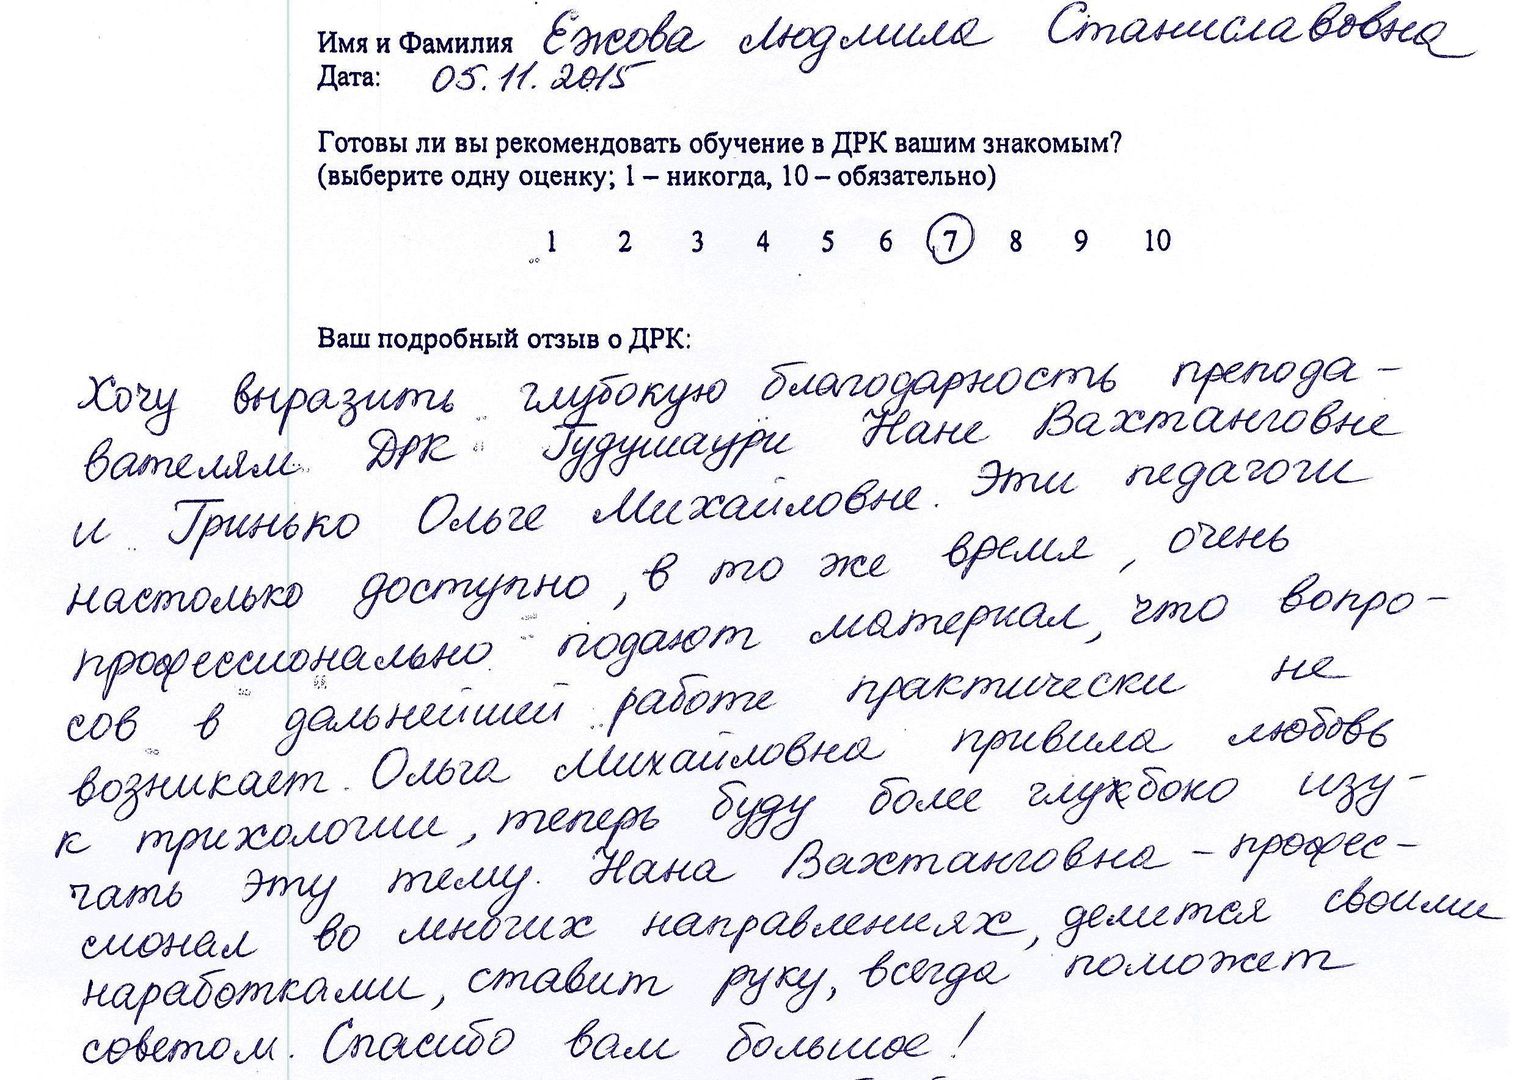 Имя и Фамилия Ежова Людмила Станиславовна
Дата: 05.11.2015
Готовы ли вы рекомендовать обучение в ДРК вашим знакомым?
(выберите одну оценку; 1 – никогда, 10 – обязательно)
1 2 3 4 5 6 7 8 9 10
Ваш подробный отзыв о ДРК:
Хочу выразить глубокую благодарность препода-
вателям ДРК Гудушаури Нане Вахтанговне
и Гринько Ольге Михайловне. Эти педагоги
настолько доступно, в то же время, очень
профессионально подают материал, что вопро-
сов в дальнейшей работе практически не
возникает. Ольга Михайловна привила любовь
к трихологии, теперь буду более глубоко изу-
чать эту тему. Нана Вахтанговна – профес-
сионал во многих направлениях, делится своими
наработками, ставит руку, всегда поможет
советом. Спасибо вам большое!